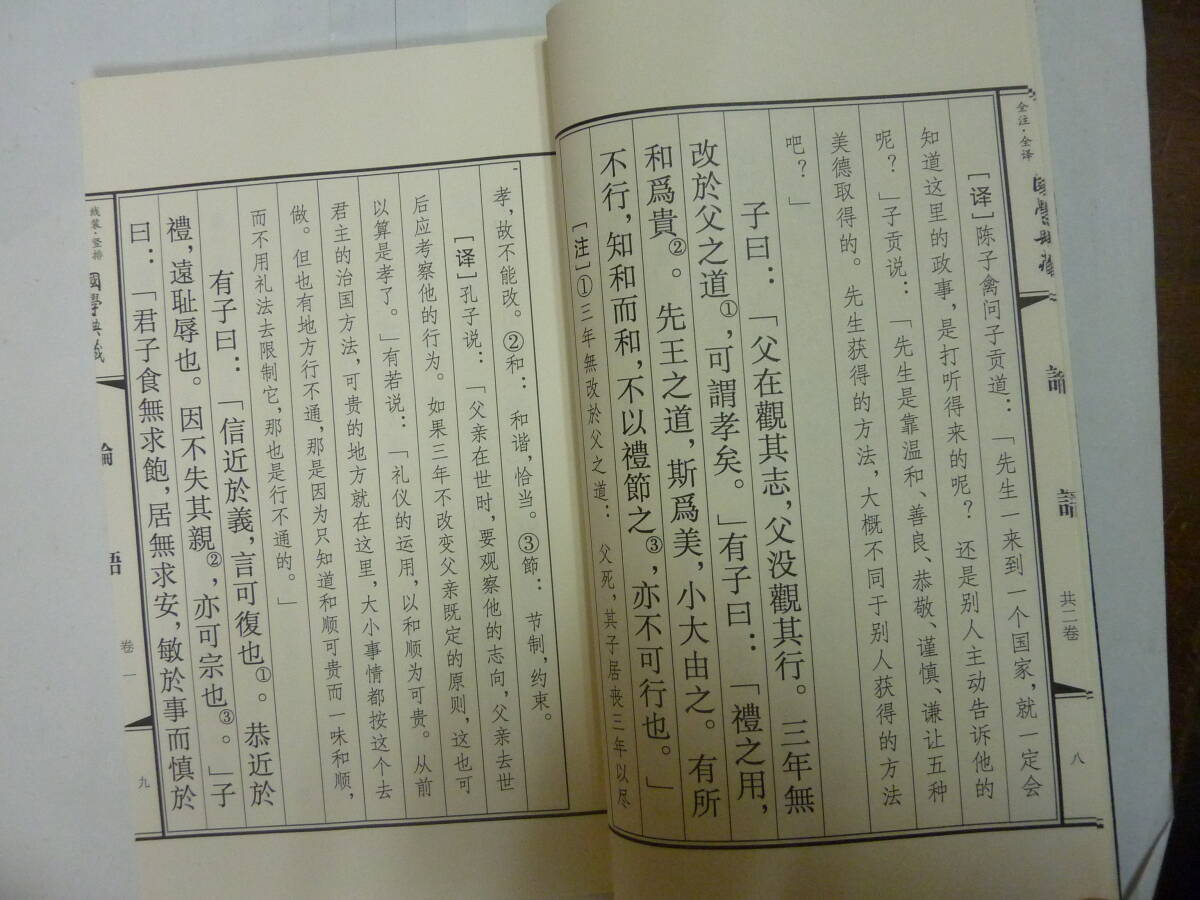 全注·全译
論語
共二卷
八
[译]陈子禽问子贡道：「先生一来到一个国家，就一定会
知道这里的政事，是打听得来的呢？还是别人主动告诉他的
呢？」子贡说：「先生是靠温和、善良、恭敬、谨慎、谦让五种
美德取得的。先生获得的方法，大概不同于别人获得的方法
吧？」
子曰：「父在觀其志，父没觀其行。三年無
改於父之道①，可謂孝矣。」有子曰：「禮之用，
和爲貴②。先王之道，斯爲美，小大由之。有所
不行，知和而和，不以禮節之③，亦不可行也。」
[注]①三年無改於父之道：父死，其子居丧三年以尽
孝，故不能改。②和：和谐，恰当。③節：节制，约束。
[译]孔子说：「父亲在世时，要观察他的志向，父亲去世
后应考察他的行为。如果三年不改变父亲既定的原则，这也可
以算是孝了。」有若说：「礼仪的运用，以和顺为可贵。从前
君主的治国方法，可贵的地方就在这里，大小事情都按这个去
做。但也有地方行不通，那是因为只知道和顺可贵而一味和顺，
而不用礼法去限制它，那也是行不通的。」
有子曰：「信近於義，言可復也①。恭近於
禮，遠耻辱也。因不失其親②，亦可宗也③。」子
曰：「君子食無求飽，居無求安，敏於事而慎於
线装·竖排
國學典藏
論語
卷一
九